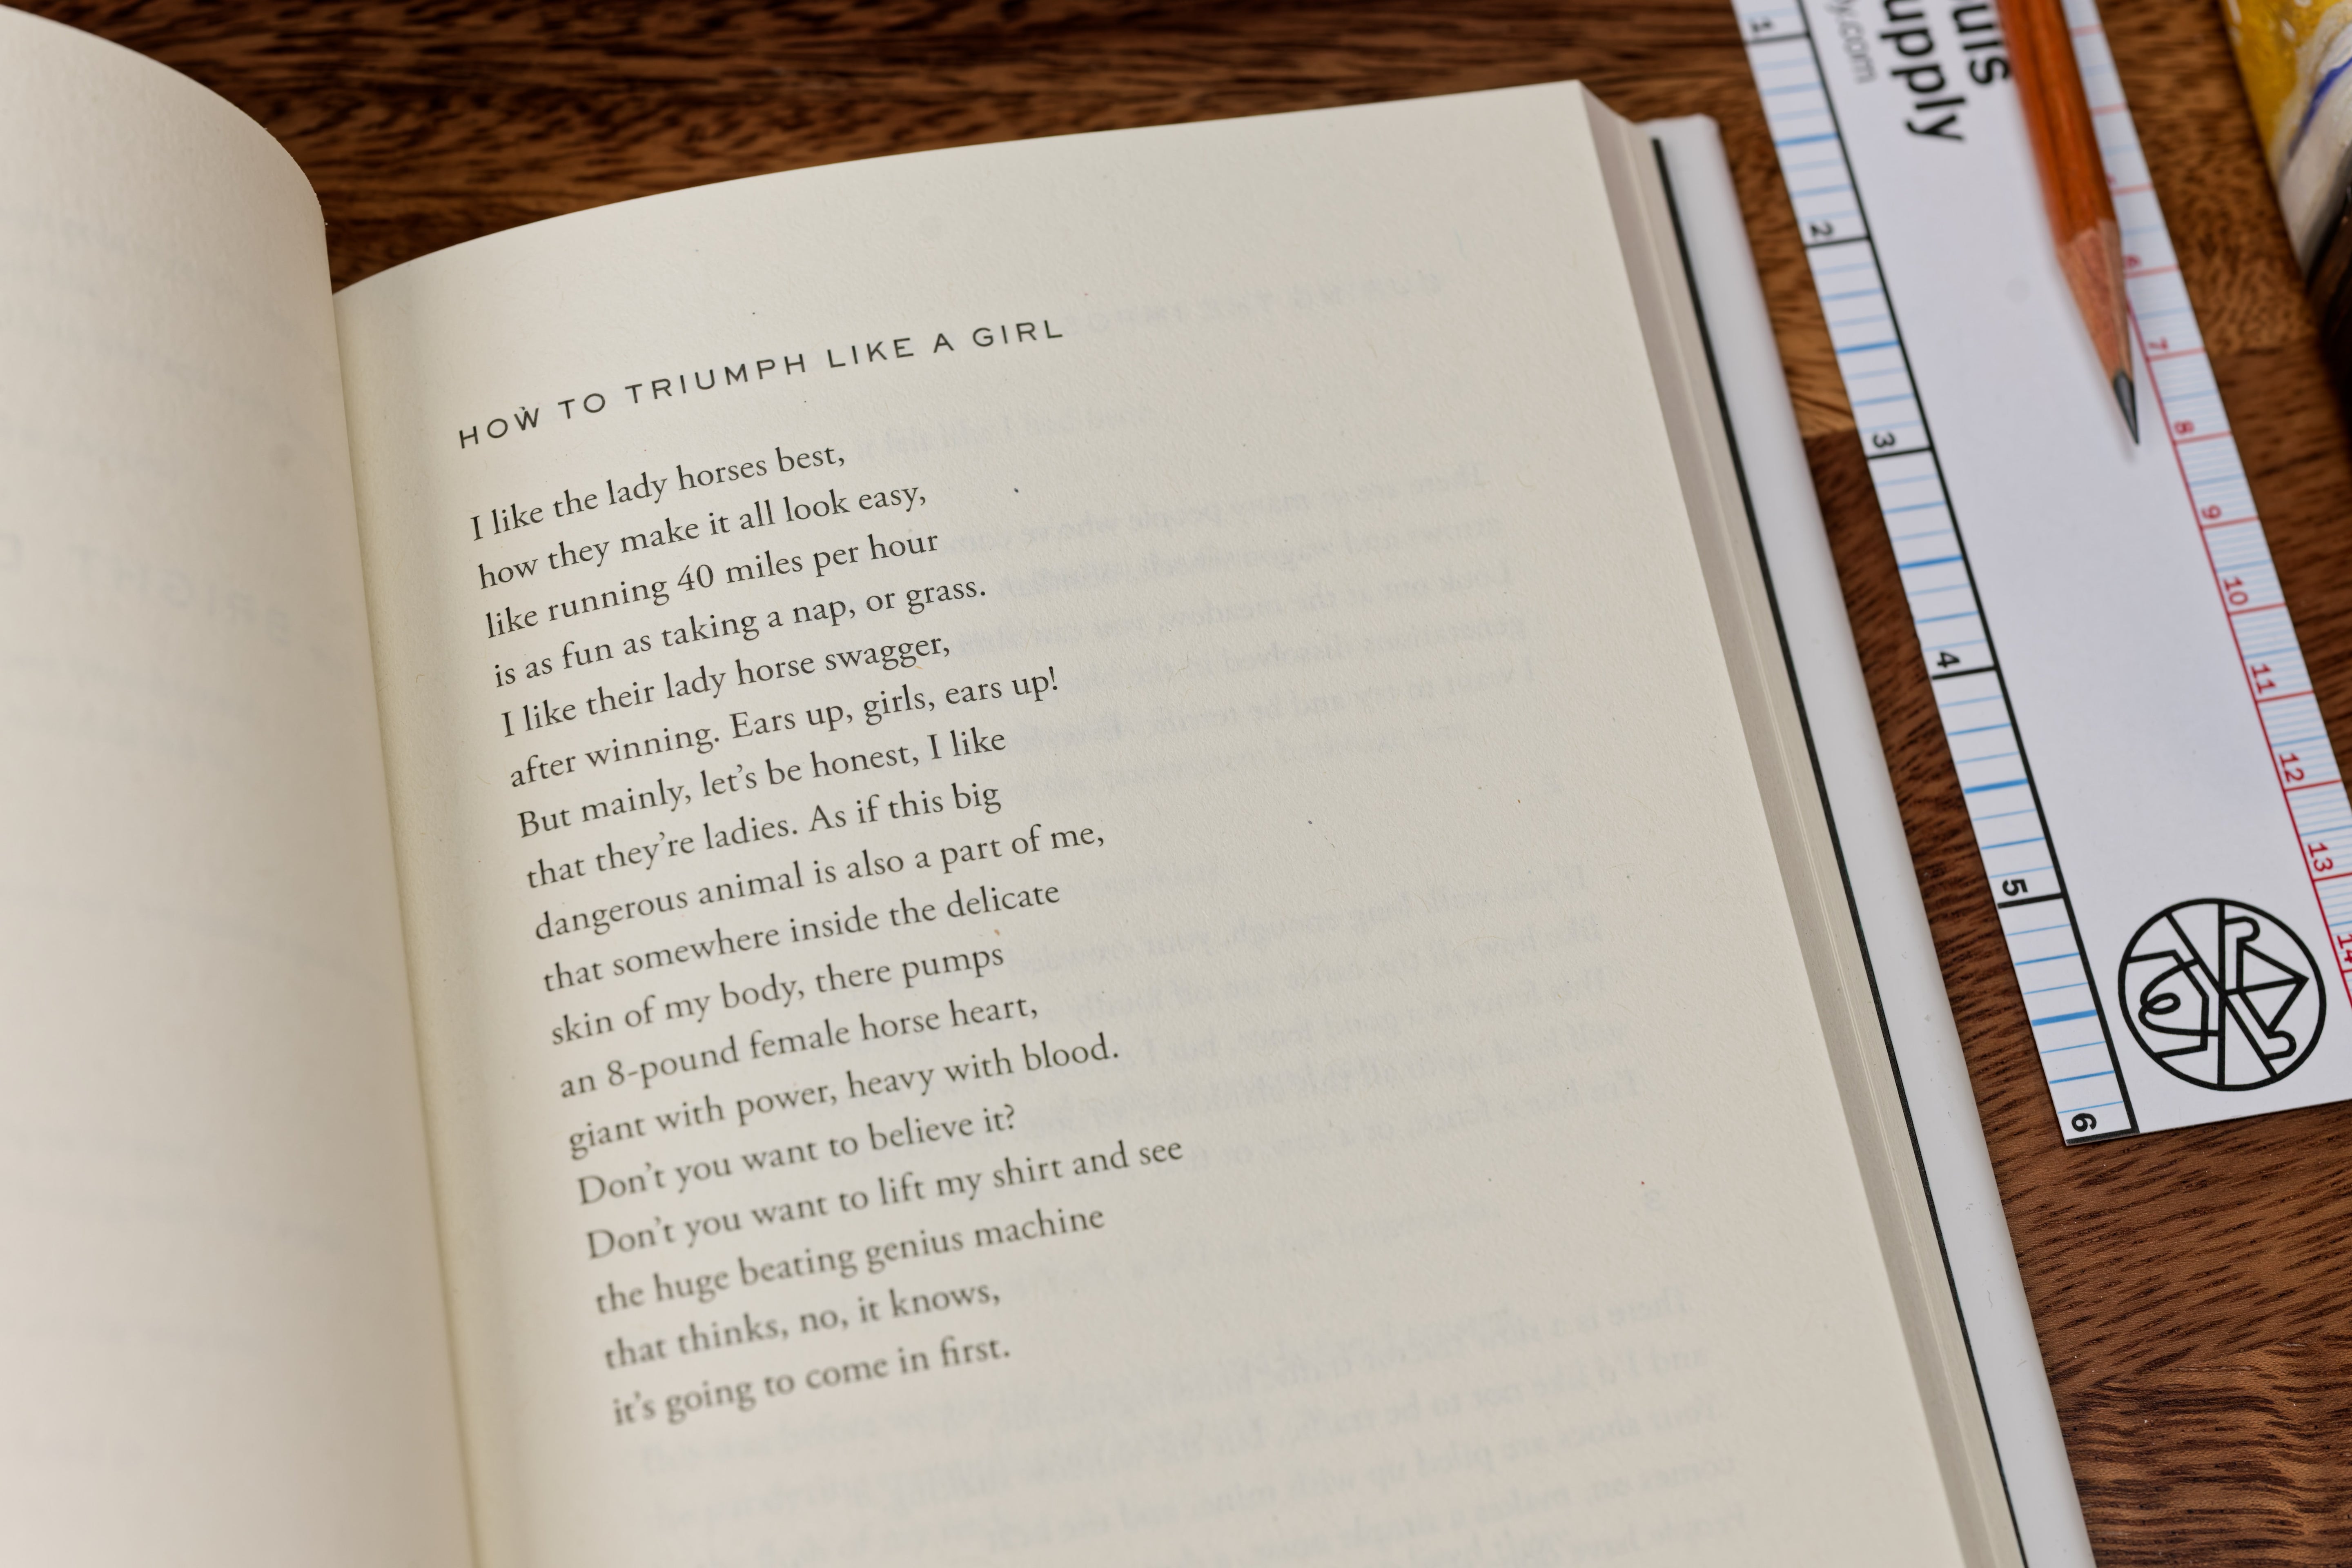 HOW TO TRIUMPH LIKE A GIRL
I like the lady horses best,
how they make it all look easy,
like running 40 miles per hour
is as fun as taking a nap, or grass.
I like their lady horse swagger,
after winning. Ears up, girls, ears up!
But mainly, let’s be honest, I like
that they’re ladies. As if this big
dangerous animal is also a part of me,
that somewhere inside the delicate
skin of my body, there pumps
an 8-pound female horse heart,
giant with power, heavy with blood.
Don’t you want to believe it?
Don’t you want to lift my shirt and see
the huge beating genius machine
that thinks, no, it knows,
it’s going to come in first.
upply
y.com
1
2
3
4
5
6
7
8
9
10
11
12
13
14